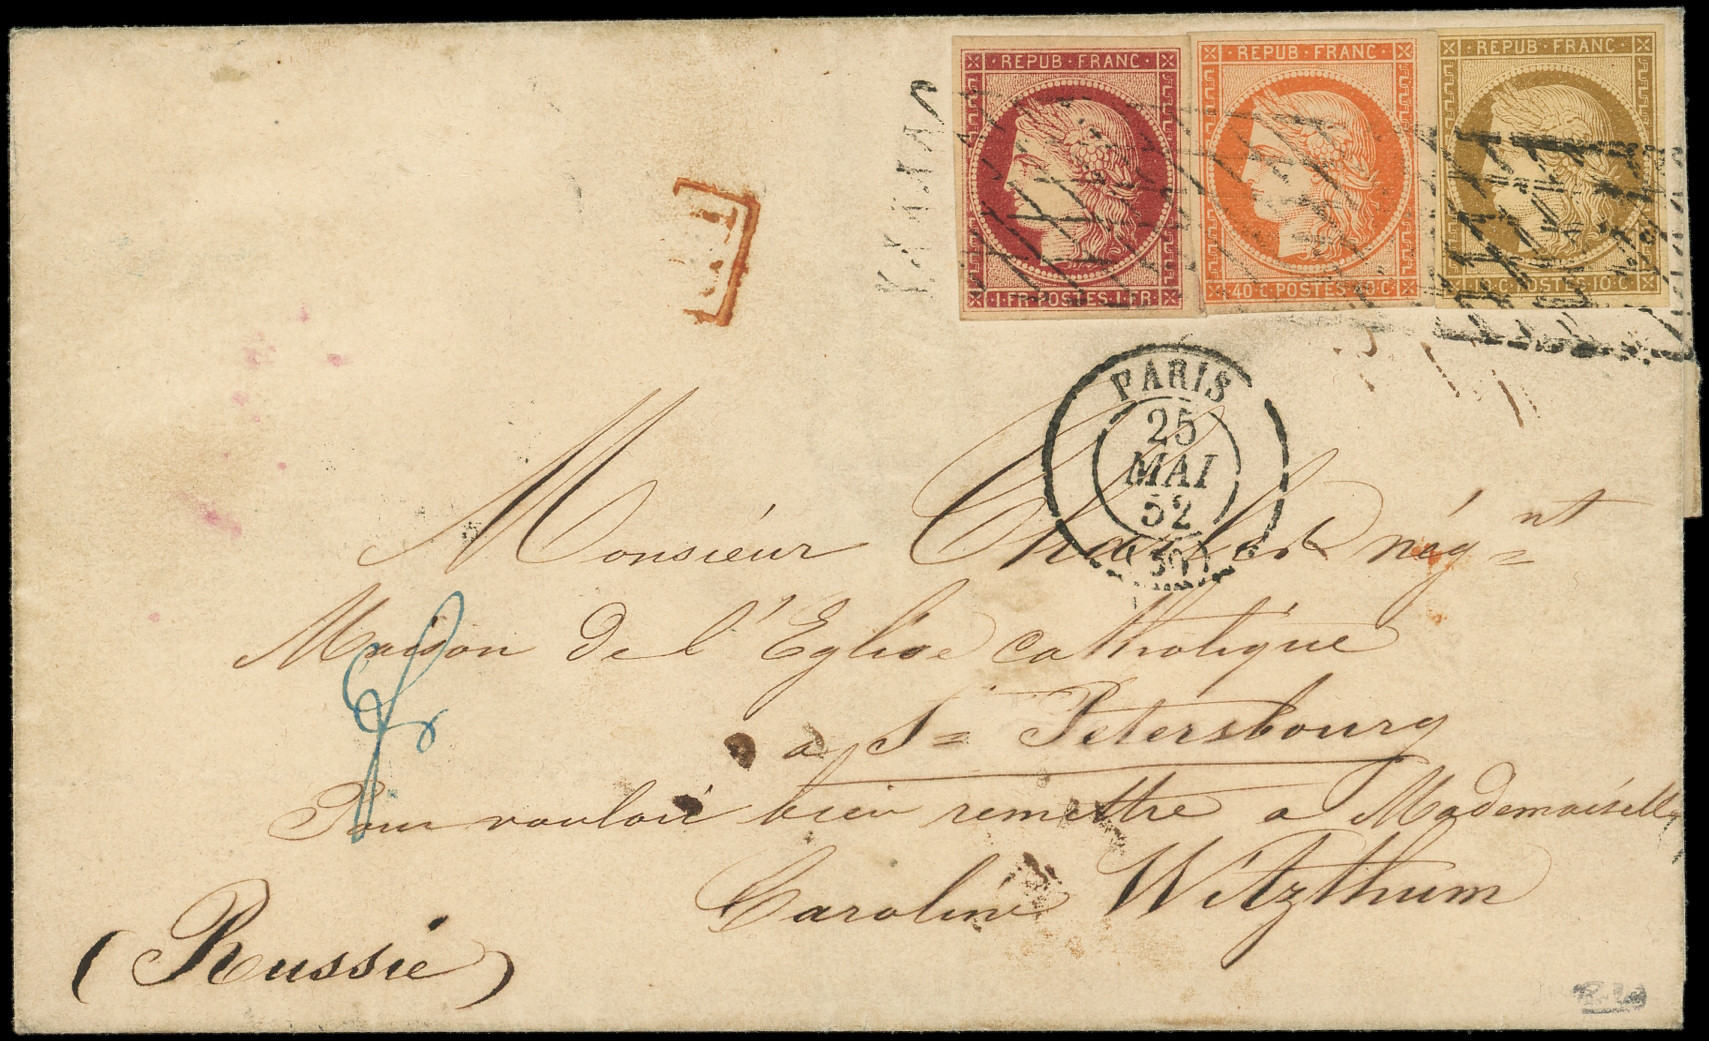 REPUB·FRANC·
1·FR·POSTES·1·FR·
REPUB·FRANC·
40·C·POSTES·40·C·
REPUB·FRANC·
10·C·POSTES·10·C·
PARIS
25
MAI
52
Monsieur Charles nég.nt
Maison de l'Eglise catholique
a St= Petersbourg
Pour vouloir bien remettre a Mademoiselle
Caroline Witzthum
(Russie)